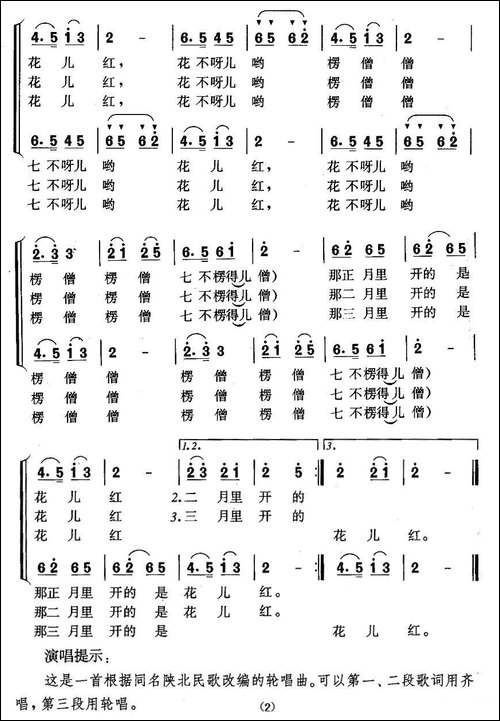 4. 5 i 3 | 2 - | 6. 5 4 5 | 6 5 6 2 | 4. 5 i 3 | 2 -
花 儿 红， 花 不 呀 儿 哟 楞 僧 僧
花 儿 红， 花 不 呀 儿 哟 楞 僧 僧
花 儿 红， 花 不 呀 儿 哟 楞 僧 僧
6. 5 4 5 | 6 5 6 2 | 4. 5 i 3 | 2 - | 6. 5 4 5 | 6 5 6 2
七 不 呀 儿 哟 花 儿 红， 花 不 呀 儿 哟
七 不 呀 儿 哟 花 儿 红， 花 不 呀 儿 哟
七 不 呀 儿 哟 花 儿 红， 花 不 呀 儿 哟
2. 3 3 | 2 i 2 5 | 6. 5 6 i | 2 - | 6 2 6 5 | 2 6 5
楞 僧 楞 僧 七 不 楞 得 儿 僧) 那 正 月 里 开 的 是
楞 僧 楞 僧 七 不 楞 得 儿 僧) 那 二 月 里 开 的 是
楞 僧 楞 僧 七 不 楞 得 儿 僧) 那 三 月 里 开 的 是
4. 5 i 3 | 2 - | 2. 3 3 | 2 i 2 5 | 6. 5 6 i | 2 -
楞 僧 僧 楞 僧 楞 僧 七 不 楞 得 儿 僧)
楞 僧 僧 楞 僧 楞 僧 七 不 楞 得 儿 僧)
楞 僧 僧 楞 僧 楞 僧 七 不 楞 得 儿 僧)
1. 2. 3.
4. 5 i 3 | 2 - | 2 3 2 i | 2 5 :| 2 2 i | 2 -
花 儿 红 2. 二 月 里 开 的
花 儿 红 3. 三 月 里 开 的
花 儿 红 花 儿 红。
6 2 6 5 | 2 6 5 | 4. 5 i 3 | 2 - :| 4. 5 i 3 | 2 -
那 正 月 里 开 的 是 花 儿 红。
那 二 月 里 开 的 是 花 儿 红。
那 三 月 里 开 的 是 花 儿 红。
演唱提示：
这是一首根据同名陕北民歌改编的轮唱曲。可以第一、二段歌词用齐
唱，第三段用轮唱。 (2)